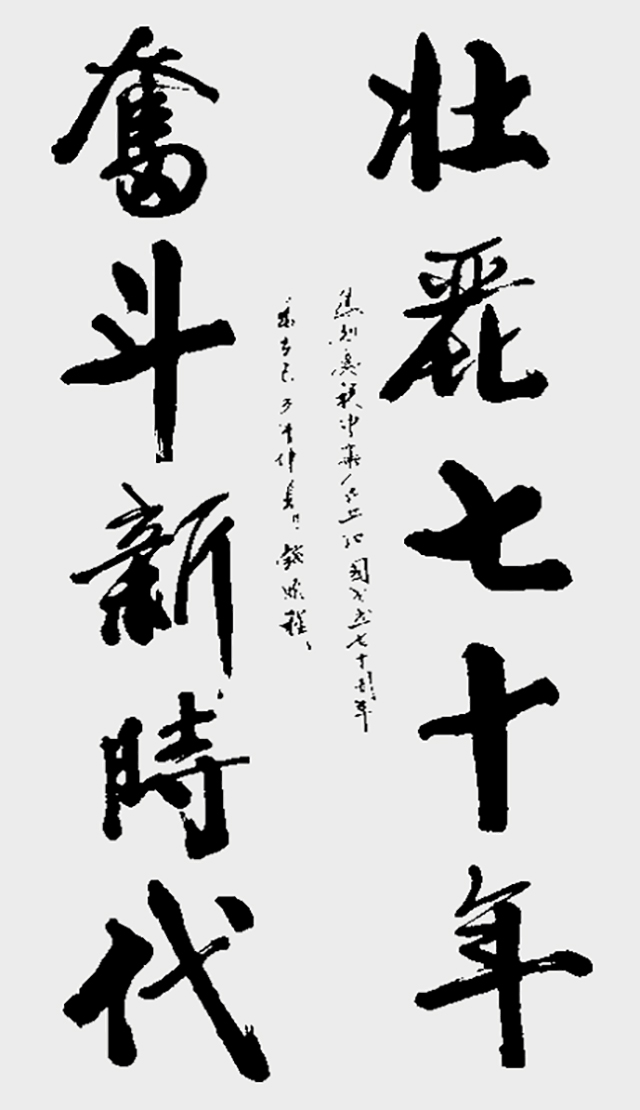 壯麗七十年
奮斗新時代
中華人民共和國成立七十周年